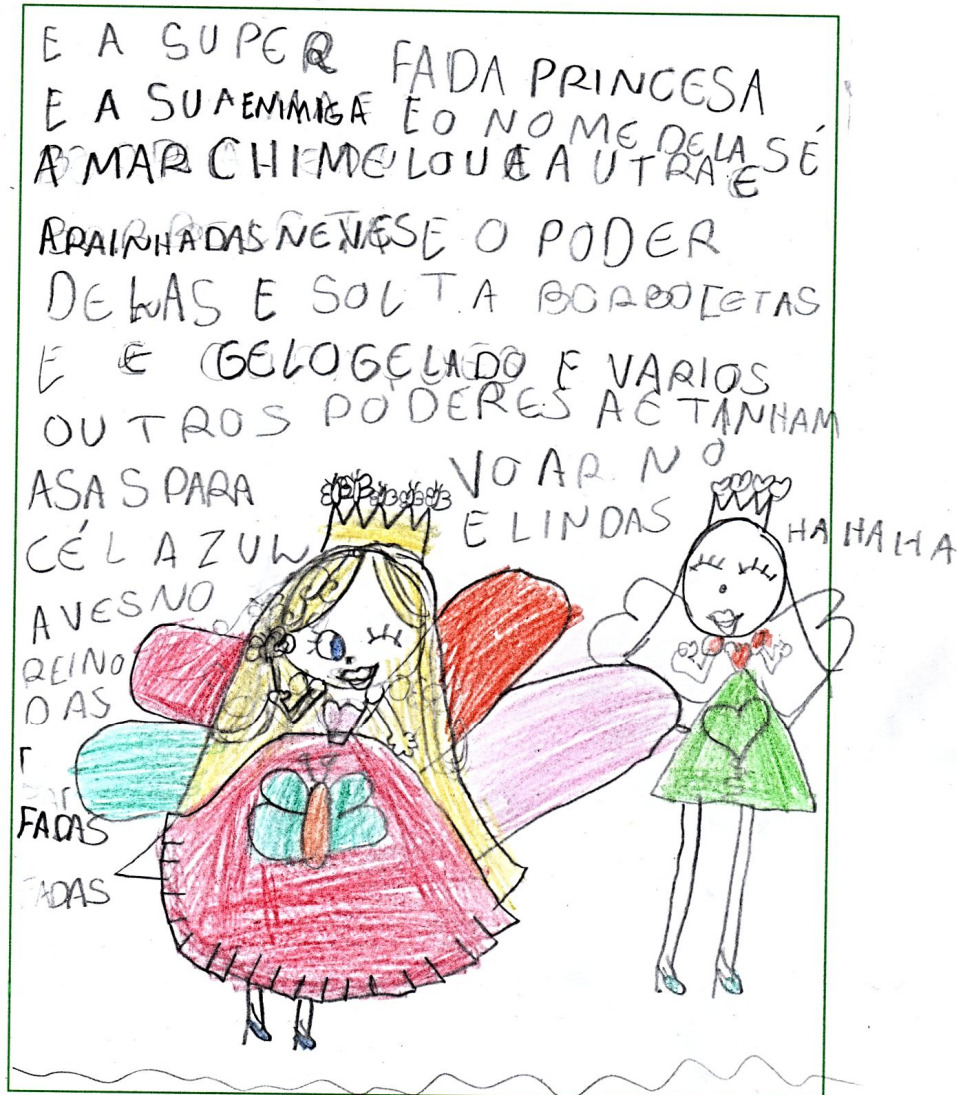 E A SUPER FADA PRINCESA
E A SUA ENMIGA E O NOME DELA SÉ
A MAR CHIMELOU E A UTRA E
A RAINHA DAS NEVES E O PODER
DELAS E SOLTA BORBOLETAS
E E GELOGELADO E VARIOS
OUTROS PODERES A E TANHAM
ASAS PARA VOAR NO
CÉL AZUL E LINDAS
HA HA HA
AVES NO
REINO
DAS
FADAS
FADAS